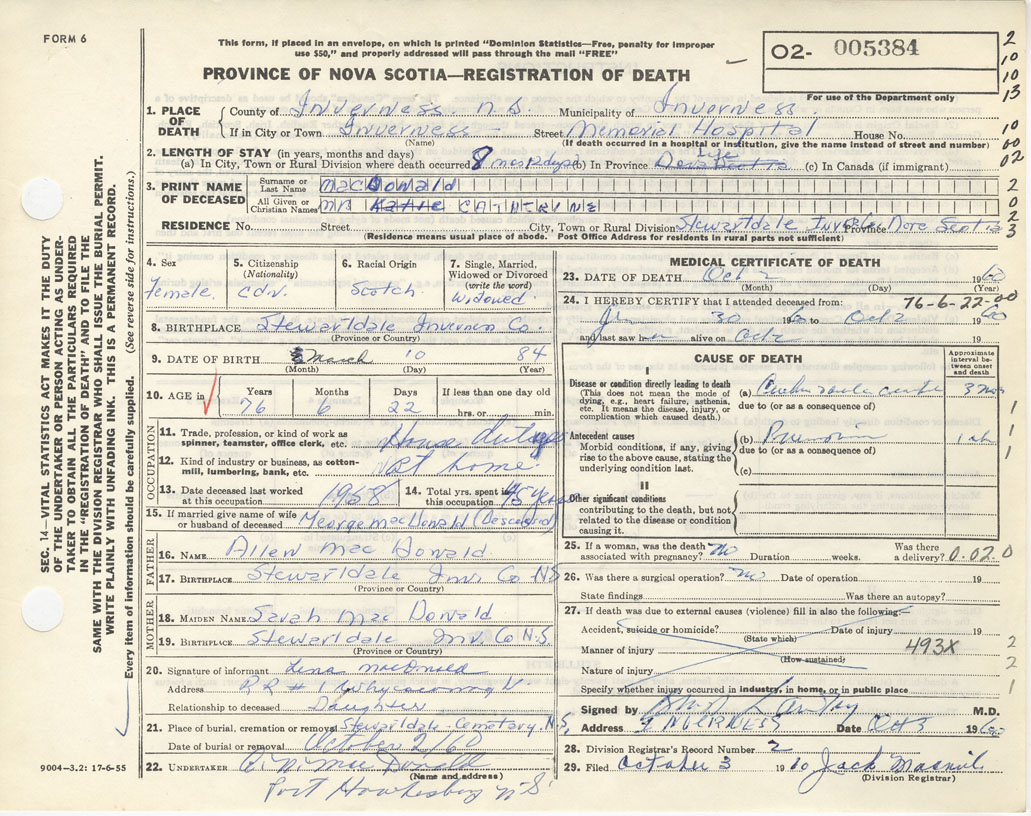 FORM 6
This form, if placed in an envelope, on which is printed "Dominion Statistics—Free, penalty for improper
use $50," and properly addressed will pass through the mail "FREE"
PROVINCE OF NOVA SCOTIA—REGISTRATION OF DEATH
O2- 005384
For use of the Department only
2
10
10
13
1. PLACE OF DEATH
County of Inverness N.S. Municipality of Inverness
If in City or Town Inverness Street Memorial Hospital House No.
(Name) (If death occurred in a hospital or institution, give the name instead of street and number)
10
00
02
2. LENGTH OF STAY (in years, months and days)
(a) In City, Town or Rural Division where death occurred 8 mos (b) In Province Life (c) In Canada (if immigrant)
3. PRINT NAME OF DECEASED
Surname or Last Name MacDonald
All Given or Christian Names Katie CATHERINE
2
0
2
3
RESIDENCE No. Street City, Town or Rural Division Stewartdale Province Nova Scotia
(Residence means usual place of abode. Post Office Address for residents in rural parts not sufficient)
SEC. 14—VITAL STATISTICS ACT MAKES IT THE DUTY
OF THE UNDERTAKER OR PERSON ACTING AS UNDER-
TAKER TO OBTAIN ALL THE PARTICULARS REQUIRED
IN THE "REGISTRATION OF DEATH" AND TO FILE THE
SAME WITH THE DIVISION REGISTRAR WHO SHALL ISSUE THE BURIAL PERMIT.
WRITE PLAINLY WITH UNFADING INK. THIS IS A PERMANENT RECORD.
Every item of information should be carefully supplied. (See reverse side for instructions.)
4. Sex
Female
5. Citizenship
(Nationality)
Cdn.
6. Racial Origin
Scotch
7. Single, Married,
Widowed or Divorced
(write the word)
Widowed
8. BIRTHPLACE Stewartdale Inverness Co.
(Province or Country)
9. DATE OF BIRTH March 10 84
(Month) (Day) (Year)
10. AGE in
Years Months Days If less than one day old
76 6 22 hrs. or min.
OCCUPATION
11. Trade, profession, or kind of work as
spinner, teamster, office clerk, etc. House duties
12. Kind of industry or business, as cotton-
mill, lumbering, bank, etc. at home
13. Date deceased last worked
at this occupation 1958
14. Total yrs. spent in
this occupation 45 years
15. If married give name of wife
or husband of deceased George MacDonald (Deceased)
FATHER
16. NAME Allen Mac Donald
17. BIRTHPLACE Stewartdale Inv. Co N.S
(Province or Country)
MOTHER
18. MAIDEN NAME Sarah Mac Donald
19. BIRTHPLACE Stewartdale Inv. Co N.S.
(Province or Country)
20. Signature of informant Lena MacDonald
Address R R # 1 Whycocomagh
Relationship to deceased Daughter
21. Place of burial, cremation or removal Stewartdale Cemetary, N.S.
Date of burial or removal October 2/60
22. UNDERTAKER Mac Donald
(Name and address)
Port Hawkesbury N.S
9004—3.2: 17-6-55
MEDICAL CERTIFICATE OF DEATH
23. DATE OF DEATH Oct 2 1960
(Month) (Day) (Year)
24. I HEREBY CERTIFY that I attended deceased from: 76-6-22-00
30 1960 to Oct 2 1960
and last saw her alive on Oct 2
CAUSE OF DEATH
Approximate
interval be-
tween onset
and death
I
Disease or condition directly leading to death
(This does not mean the mode of
dying, e.g., heart failure, asthenia,
etc. It means the disease, injury, or
complication which caused death.)
(a) 3 mos
due to (or as consequence of)
Antecedent causes
Morbid conditions, if any, giving
rise to the above cause, stating the
underlying condition last.
(b) Pneumonia
due to (or as consequence of)
(c)
II
Other significant conditions
contributing to the death, but not
related to the disease or condition
causing it.
1
1
1
25. If a woman, was the death
associated with pregnancy? No Duration weeks. Was there
a delivery? 0.02.0
26. Was there a surgical operation? no Date of operation 19
State findings Was there an autopsy?
27. If death was due to external causes (violence) fill in also the following:
Accident, suicide or homicide? Date of injury 19
(State which)
Manner of injury 493X
(How sustained)
Nature of injury
Specify whether injury occurred in industry, in home, or in public place
2
2
1
Signed by M.D.
Address INVERNESS Date Oct 3 1960
28. Division Registrar's Record Number 2
29. Filed October 3 1960 Jack
(Division Registrar)